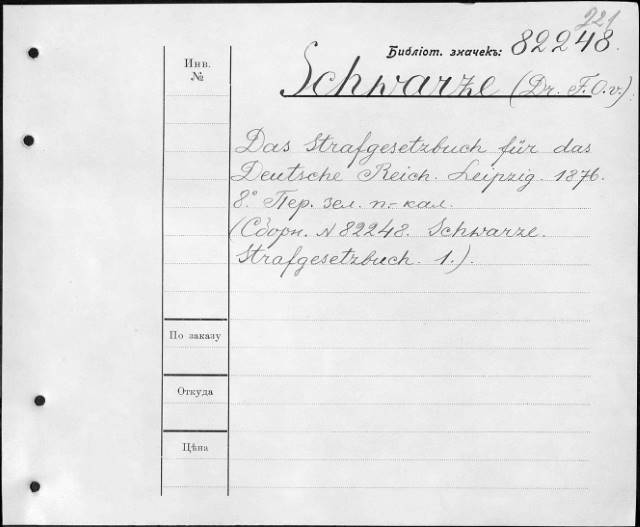 221
Библіот. значекъ: 82248.
Инв.
№
Schwarze (Dr. F. O. v.).
Das Strafgesetzbuch für das
Deutsche Reich. Leipzig. 1876.
8° Пер. зел. п.-кал.
(Сборн. N 82248. Schwarze.
Strafgesetzbuch. 1.).
По заказу
Откуда
Цѣна